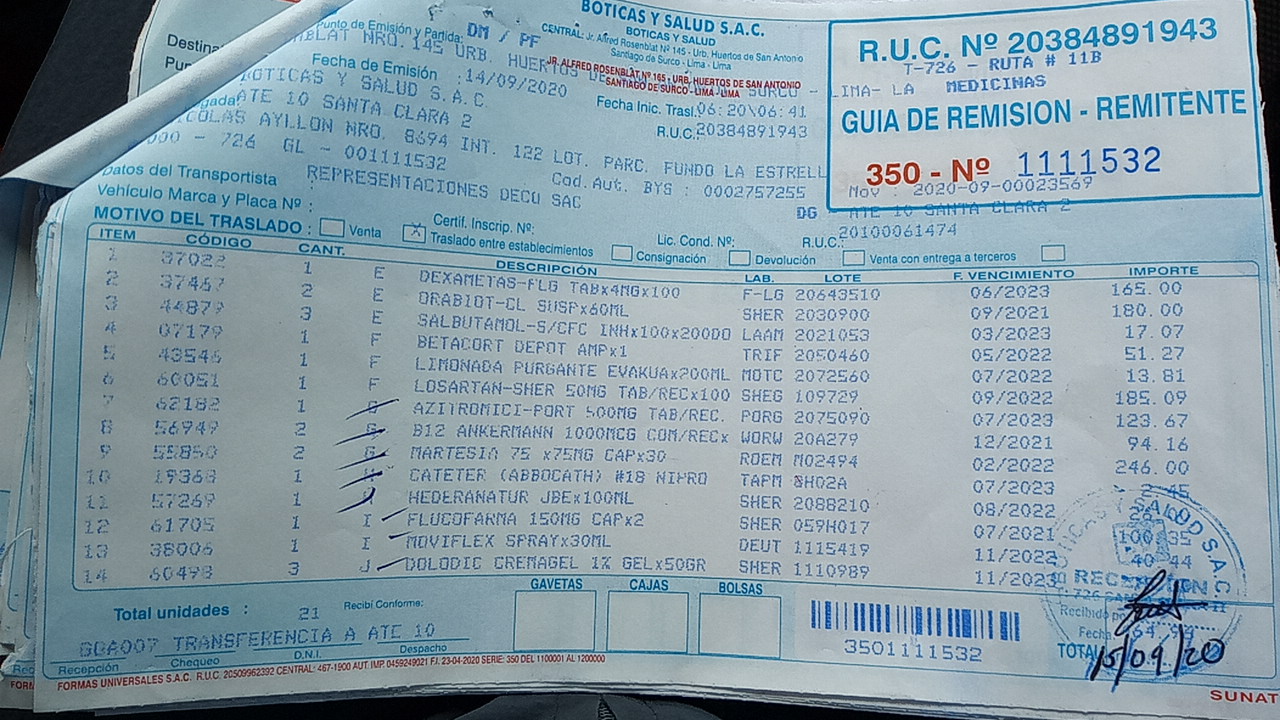 BOTICAS Y SALUD S.A.C.
BOTICAS Y SALUD
CENTRAL: Jr. Alfred Rosenblat Nº 145 - Urb. Huertos de San Antonio
Santiago de Surco - Lima - Lima
JR. ALFRED ROSENBLAT Nº 165 - URB. HUERTOS DE SAN ANTONIO
SANTIAGO DE SURCO - LIMA - LIMA
Punto de Emisión y Partida: DM / PF
NRO. 145 URB. HUERTOS DE SURCO - LIMA- LA
Destina
Fecha de Emisión : 14/09/2020
Fecha Inic. Trasl. 06:20\06:41
BOTICAS Y SALUD S.A.C.
R.U.C.: 20384891943
ATE 10 SANTA CLARA 2
AYLLON NRO. 8694 INT. 122 LOT. PARC. FUNDO LA ESTRELL
726 GL - 001111532
Cod.Aut. BYS : 0002757255
R.U.C. Nº 20384891943
T-726 - RUTA # 11B
MEDICINAS
GUIA DE REMISION - REMITENTE
350 - Nº 1111532
Mov. 2020-09-00023569
DG - ATE 10 SANTA CLARA 2
Datos del Transportista REPRESENTACIONES DECO SAC
20100061474
Vehículo Marca y Placa Nº :
Certif. Inscrip. Nº:
Lic. Cond. Nº:
R.U.C.:
MOTIVO DEL TRASLADO : Venta X Traslado entre establecimientos Consignación Devolución Venta con entrega a terceros
ITEM CÓDIGO CANT. DESCRIPCIÓN LAB. LOTE F. VENCIMIENTO IMPORTE
1 37022 1 E DEXAMETAS-FLG TABx4MGx100 F-LG 20643510 06/2023 165.00
2 37467 2 E ORABIOT-CL SUSPx60ML SHER 2030900 09/2021 180.00
3 44879 3 E SALBUTAMOL-S/CFC INHx100x200DO LAAM 2021053 03/2023 17.07
4 07179 1 F BETACORT DEPOT AMPx1 TRIF 2050460 05/2022 51.27
5 43546 1 F LIMONADA PURGANTE EVAKUAx200ML MOTC 2072560 07/2022 13.81
6 60051 1 F LOSARTAN-SHER 50MG TAB/RECx100 SHEG 109729 09/2022 185.09
7 62182 1 G AZITROMICI-PORT 500MG TAB/REC. PORG 2075090 07/2023 123.67
8 56949 2 G B12 ANKERMANN 1000MCG COM/RECx WORW 20A279 12/2021 94.16
9 55850 2 G MARTESIA 75 x75MG CAPx30 ROEM M02494 02/2022 246.00
10 19368 1 CATETER (ABBOCATH) #18 NIPRO TAPM 8H02A 07/2023 2.45
11 57269 1 HEDERANATUR JBEx100ML SHER 2088210 08/2022
12 61705 1 I FLUCOFARMA 150MG CAPx2 SHER 059H017 07/2021 100.35
13 38006 1 I MOVIFLEX SPRAYx30ML DEUT 1115419 11/2022 40.44
14 60498 3 J DOLODIC CREMAGEL 1% GELx50GR SHER 1110989 11/2023
GAVETAS CAJAS BOLSAS
Total unidades : 21
Recibí Conforme:
GCA007 TRANSFERENCIA A ATE 10
Recepción Chequeo D.N.I. Despacho
3501111532
BOTICAS Y SALUD S.A.C.
RECEPCION
Recibido por
Fecha
TOTAL
15/09/20
FORMAS UNIVERSALES S.A.C. R.U.C. 20509962392 CENTRAL: 467-1900 AUT. IMP. 0459249021 F.I. 23-04-2020 SERIE: 350 DEL 1100001 AL 1200000
SUNAT